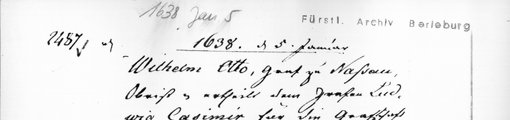 1638 Jan 5
Fürstl. Archiv Berleburg
2457
1638. d 5. Januar
Wilhelm Otto, Graf zu Naßau,
Obrist ertheilt dem Grafen Lud-
wig Casimir für die Grafschaft